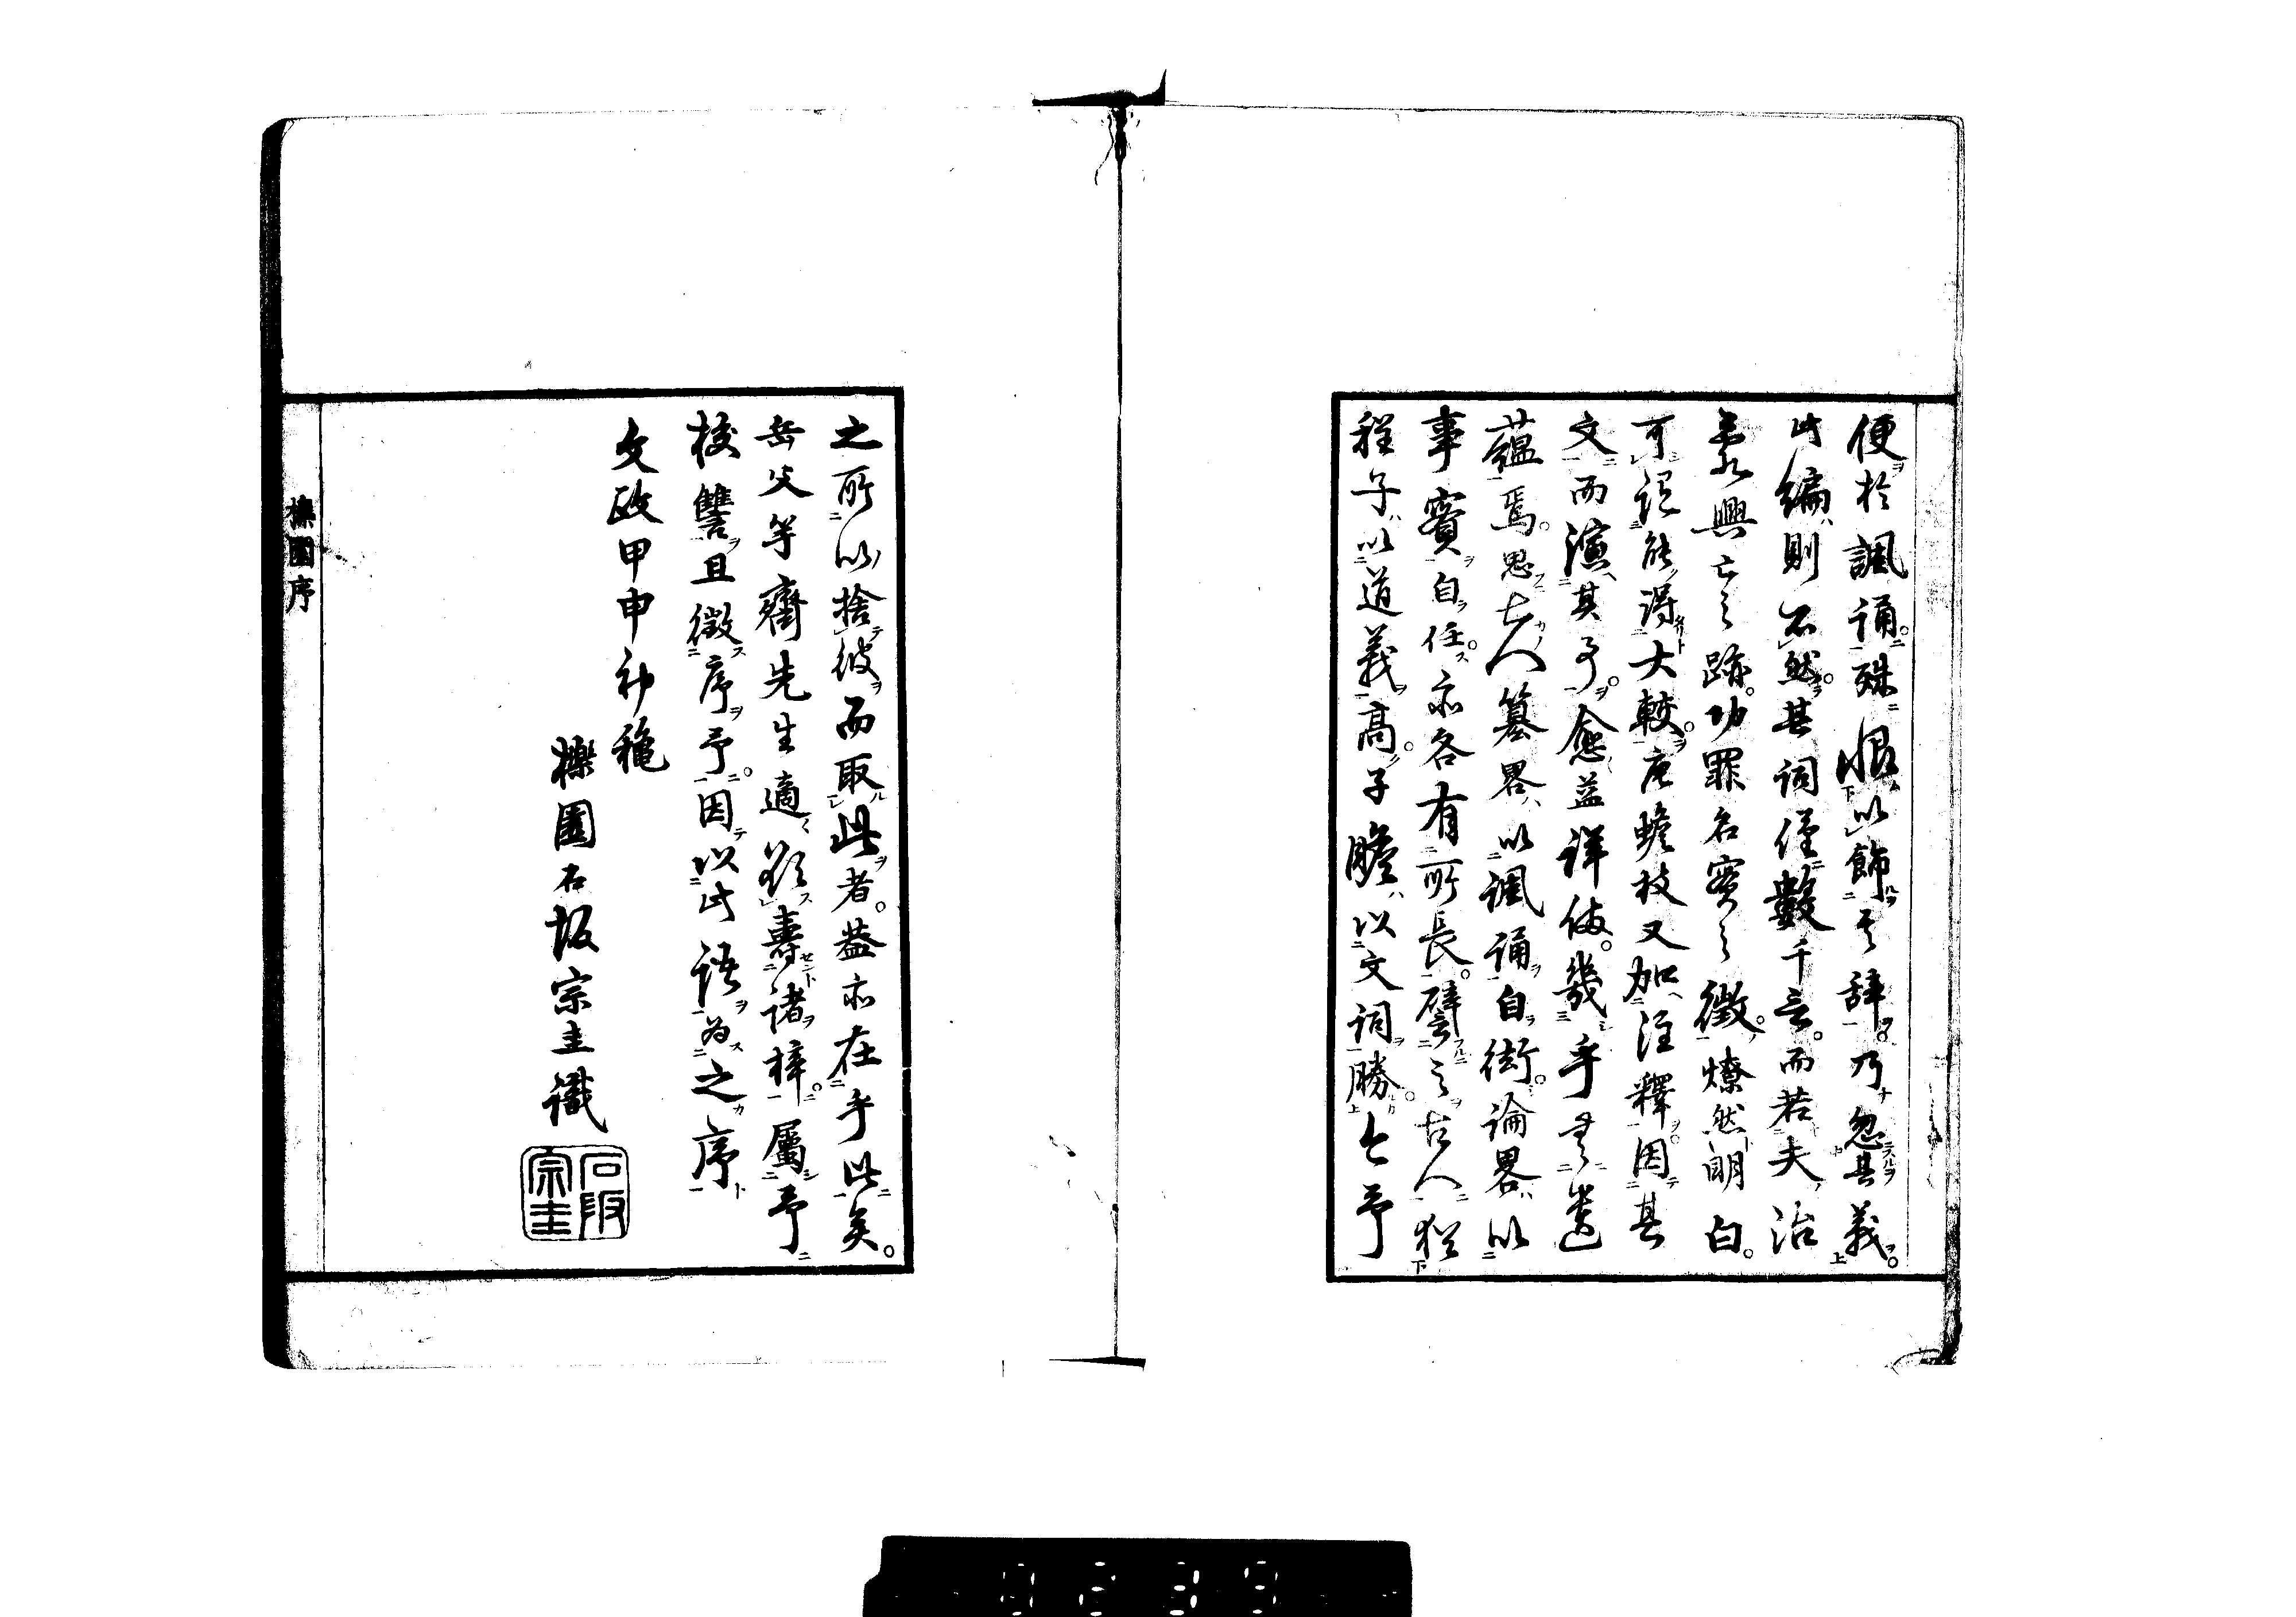 便於諷誦殊恨以飾其辞乃忽其義
此編則不然其詞僅數千言而若夫治
亂興亡之跡功罪名實之徵燎然明白
可詔能得大較唐蟾枝又加注釋因其
文而演其事愈益詳備幾乎無遺
蘊焉思古人篡畧以諷誦自衒論畧以
事實自任亦各有所長譬之古人猶
程子以道義高子瞻以文詞勝今予
之所以捨彼而取此者蓋亦在乎此矣
岳父竽齋先生適欲壽諸梓屬予
校讐且徵序予因以此語為之序
文政甲申初穐
櫟園石坂宗圭識
石阪宗圭
櫟園序